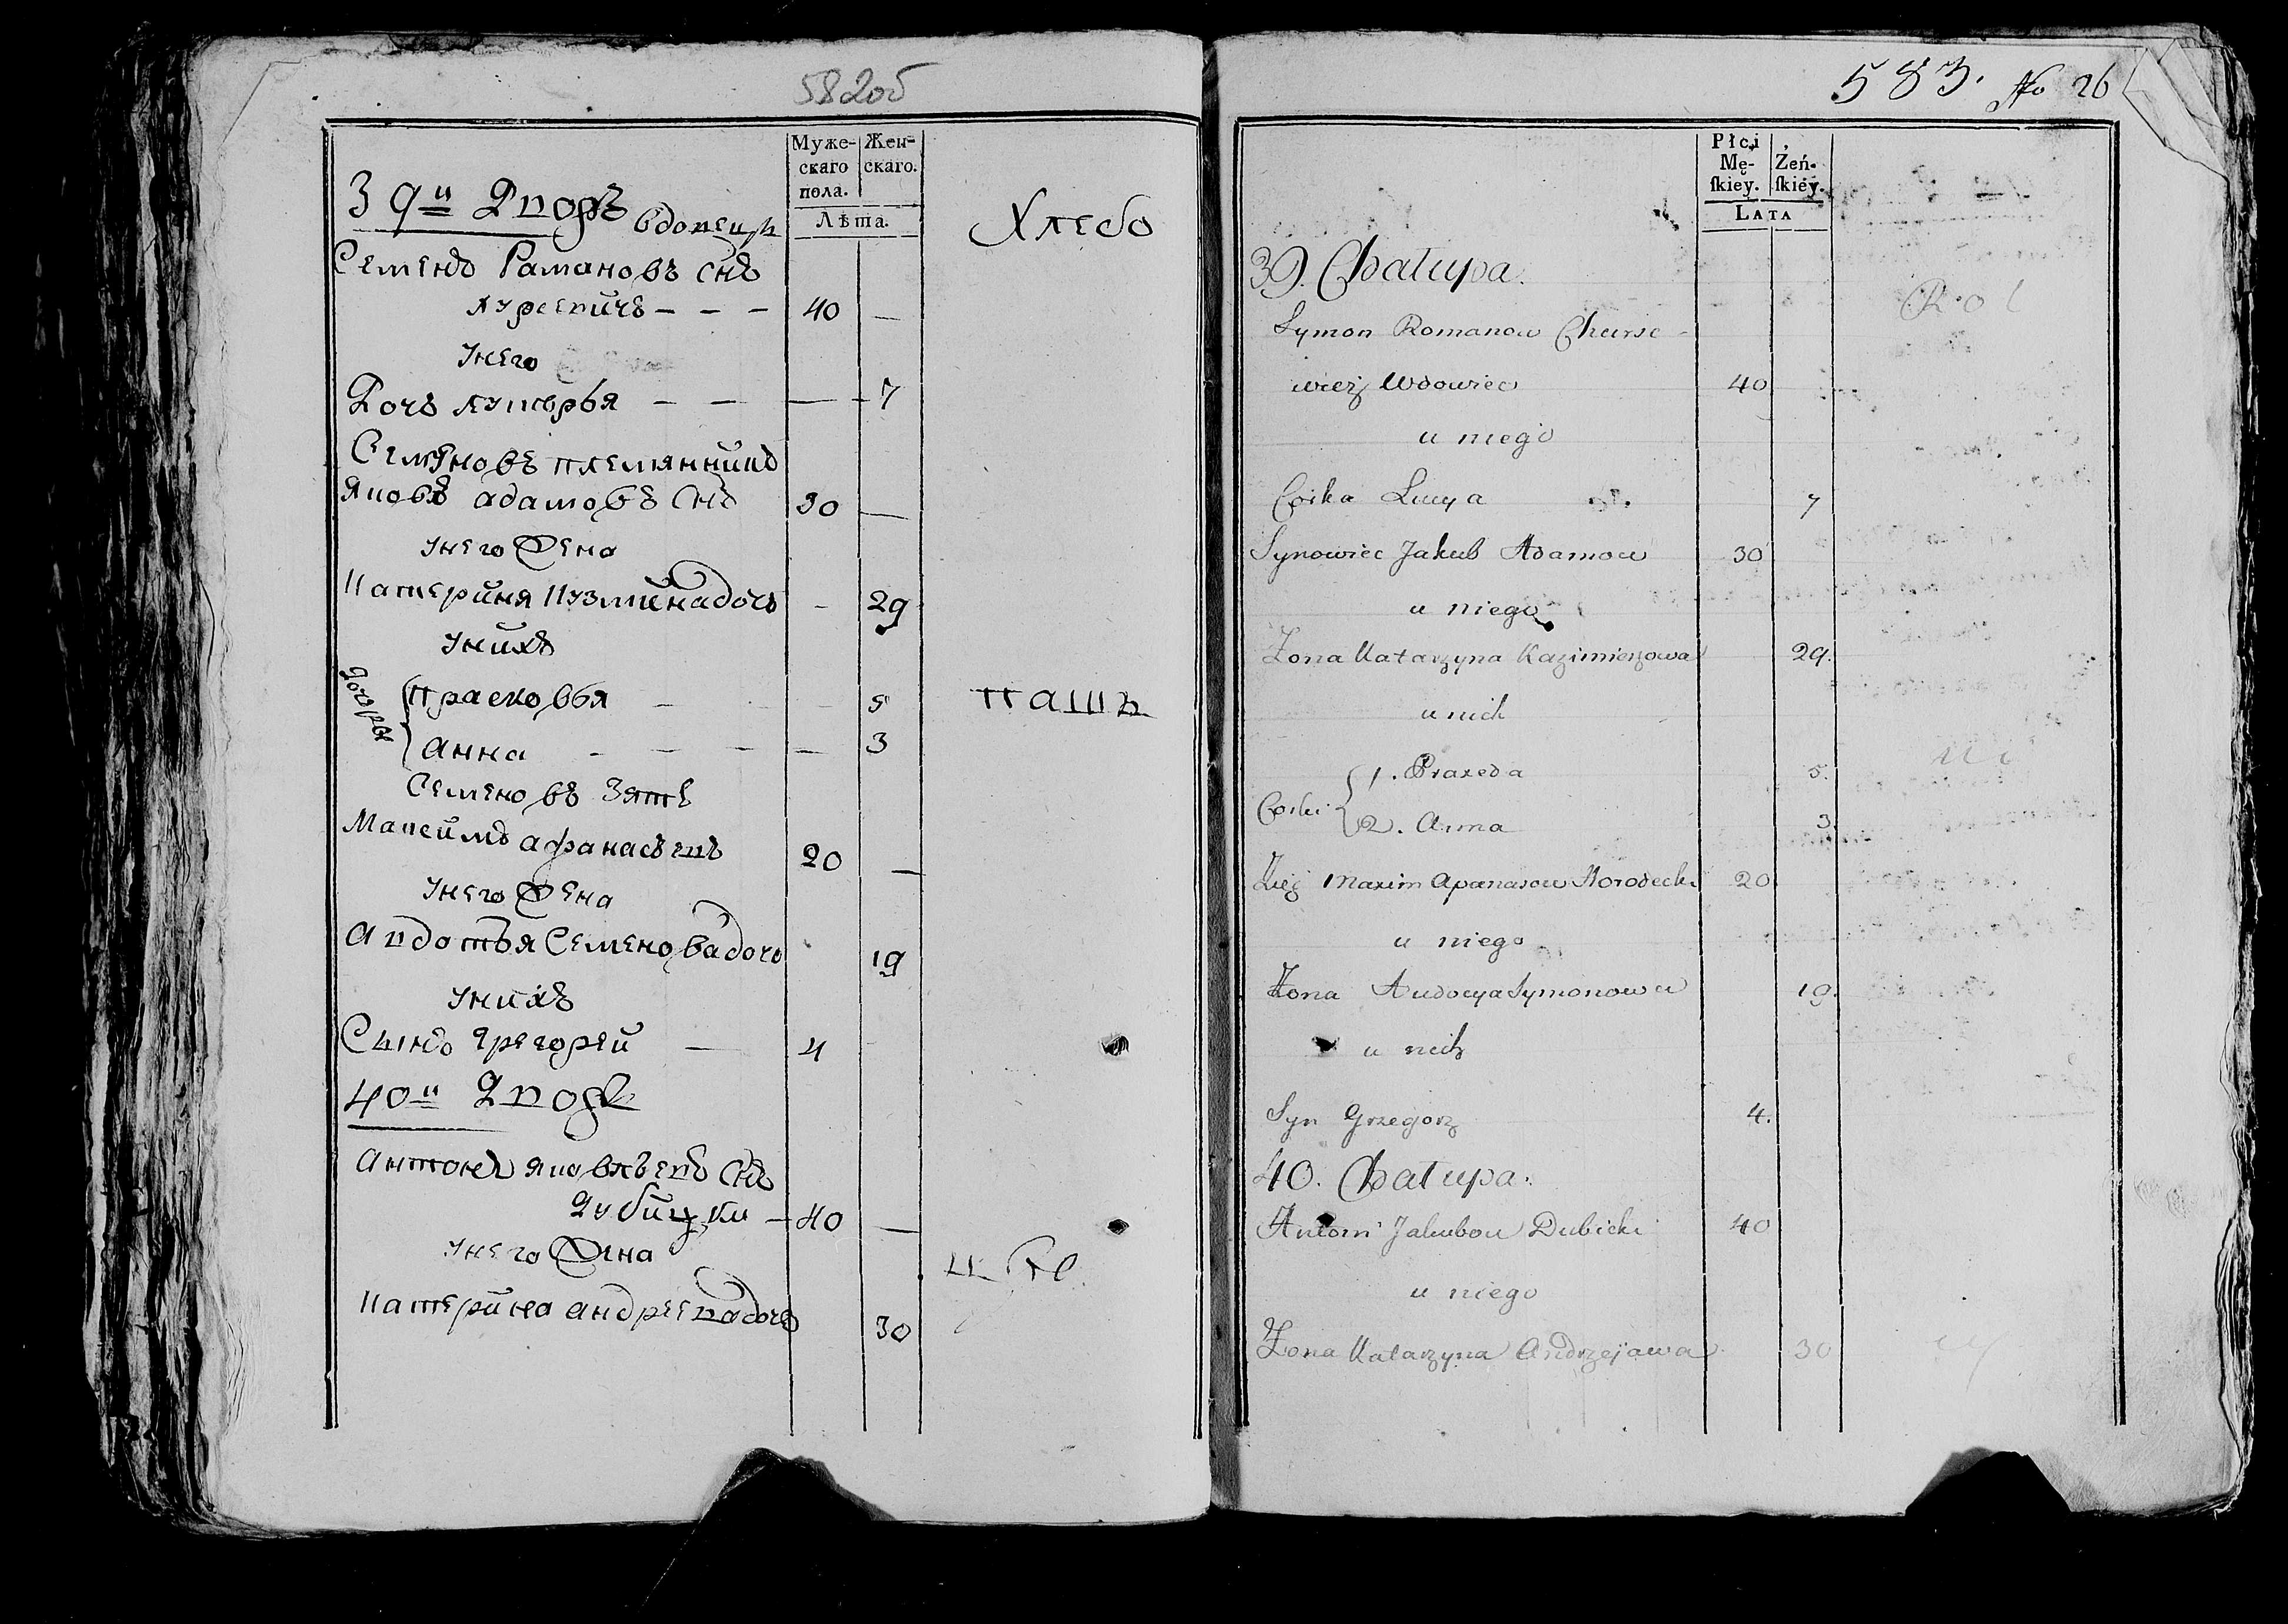 582об
Муже-
скаго
пола.
Жен-
скаго.
Лѣта.
39й Дворъ вдовецъ
Хлебо
Семенъ Рамановъ снъ
40 —
Унего
Дочь — — — 7
Семѣновъ племянникъ
Яковъ адамовъ Снъ 30 —
Унего Жена
Катерина Кузминадочь - 29
Унихъ
дочеры
Прасковья — 5
пашъ
Анна - — — — 3
Семеновъ Зять
Максимъ афанасьевъ 20 —
Унего Жена
Авдотья Семеновадочь 19
Унихъ
Сынъ Григорей — 4
40й Дворъ
Антонъ яковлъевъ Снъ
Дубицки — 40 —
Унего Жена
Катерина андреевадочь 30
583. No 26
Płci
Mę-
skiey.
Żeń-
skiéy.
LATA
39. Chałupa.
Rol
Symon Romanow Churse-
wicz Wdowiec 40
u niego
Corka Lucya 7
Synowiec Jakub Adamow 30
u niego
Zona Katarzyna Kazimierzowa 29.
u nich
Corki
1. Praxeda 5.
2. Anna 3
Zięć Maxim Apanasow Horodecki 20
u niego
Zona Audocya Symonowa 19.
u nich
Syn Grzegorz 4.
40. Chałupa.
Antoni Jakubow Dubicki 40
u niego
Zona Katarzyna Andrzejowa 30